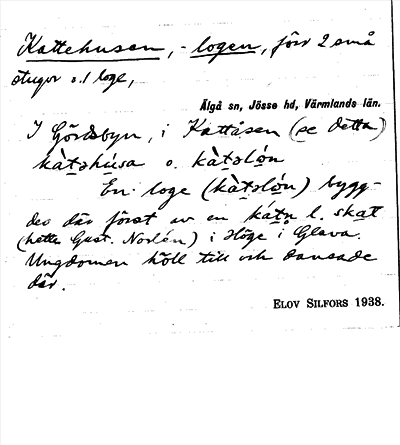 Kattehusen, -logen, förr 2 små
stugor o. 1 loge,
Älgå sn, Jösse hd, Värmlands län.
I Gördsbyn, i Kattåsen (se detta)
kàtəhúsa o. kàtəlón
En loge (kàtəlón) bygg-
des där först av en kátn l. skat
(hette Gust. Norlén) i Höge i Glava.
Ungdomen höll till och dansade
där.
ELOV SILFORS 1938.